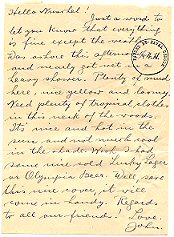 Hello Herschel!
Just a word to
let you know that everything
is fine except the weather.
Was ashore this afternoon
and nearly got wet in a
heavy shower. Plenty of mud
here, nice yellow and loomy.
Need plenty of tropical clothes
in this neck of the woods.
It's nice and hot in the
sun, and not much cool
in the shade. Wish I had
some nice cold Lucky Lager
or Olympia Beer. Well, save
this nice cover, it will
come in handy. Regards
to all our friends! Love,
John.